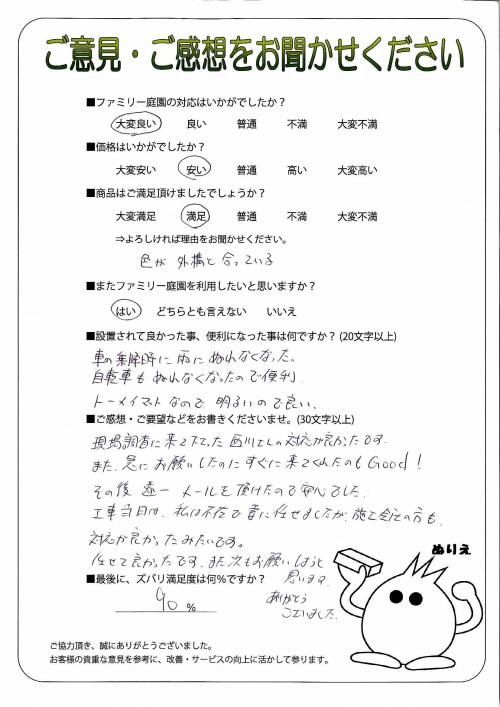 ご意見・ご感想をお聞かせください
■ファミリー庭園の対応はいかがでしたか？
大変良い 良い 普通 不満 大変不満
■価格はいかがでしたか？
大変安い 安い 普通 高い 大変高い
■商品はご満足頂けましたでしょうか？
大変満足 満足 普通 不満 大変不満
⇒よろしければ理由をお聞かせください。
色が 外構と合っている
■またファミリー庭園を利用したいと思いますか？
はい どちらとも言えない いいえ
■設置されて良かった事、便利になった事は何ですか？(20文字以上)
車の乗降時に雨にぬれなくなった。
自転車もぬれなくなったので便利.
トーメイマットなので 明るいので良い.
■ご感想・ご要望などをお書きくださいませ。(30文字以上)
現場調査に来て下さった 西川さんの対応が良かったです.
また、急にお願いしたのにすぐに来てくれたのもGood!
その後 逐一 メールを頂けたので安心でした.
工事当日は、私は不在で妻に任せましたが、施工会社の方も、
対応が良かったみたいです。
任せて良かったです。また次もお願いしようと
思います。
ありがとう
ございました.
■最後に、ズバリ満足度は何%ですか？
90 %
ぬりえ
ご協力頂き、誠にありがとうございました。
お客様の貴重な意見を参考に、改善・サービスの向上に活かして参ります。